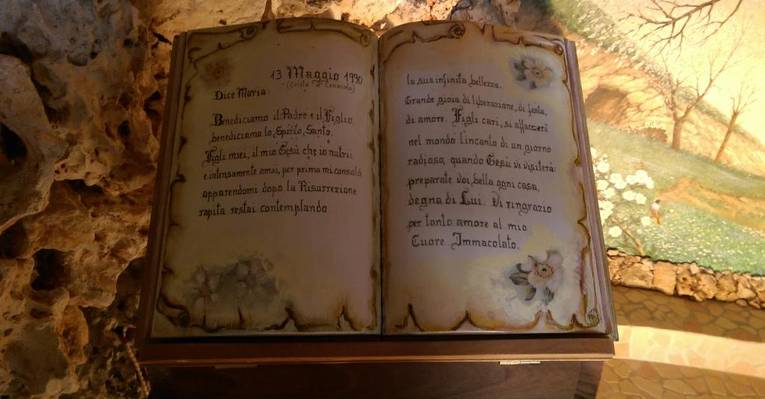 13 Maggio 1990
Dice Maria:
Benediciamo il Padre e il Figlio
benediciamo lo Spirito Santo.
Figli miei, il mio Gesù che io nutrii
e intensamente amai, per prima mi consolò
apparendomi dopo la Risurrezione
rapita restai contemplando
la sua infinita bellezza.
Grande gioia di liberazione, di festa,
di amore. Figli cari, si affaccerà
nel mondo l'incanto di un giorno
radioso, quando Gesù vi visiterà:
preparate voi, bella ogni casa,
degna di Lui. Vi ringrazio
per tanto amore al mio
Cuore Immacolato.